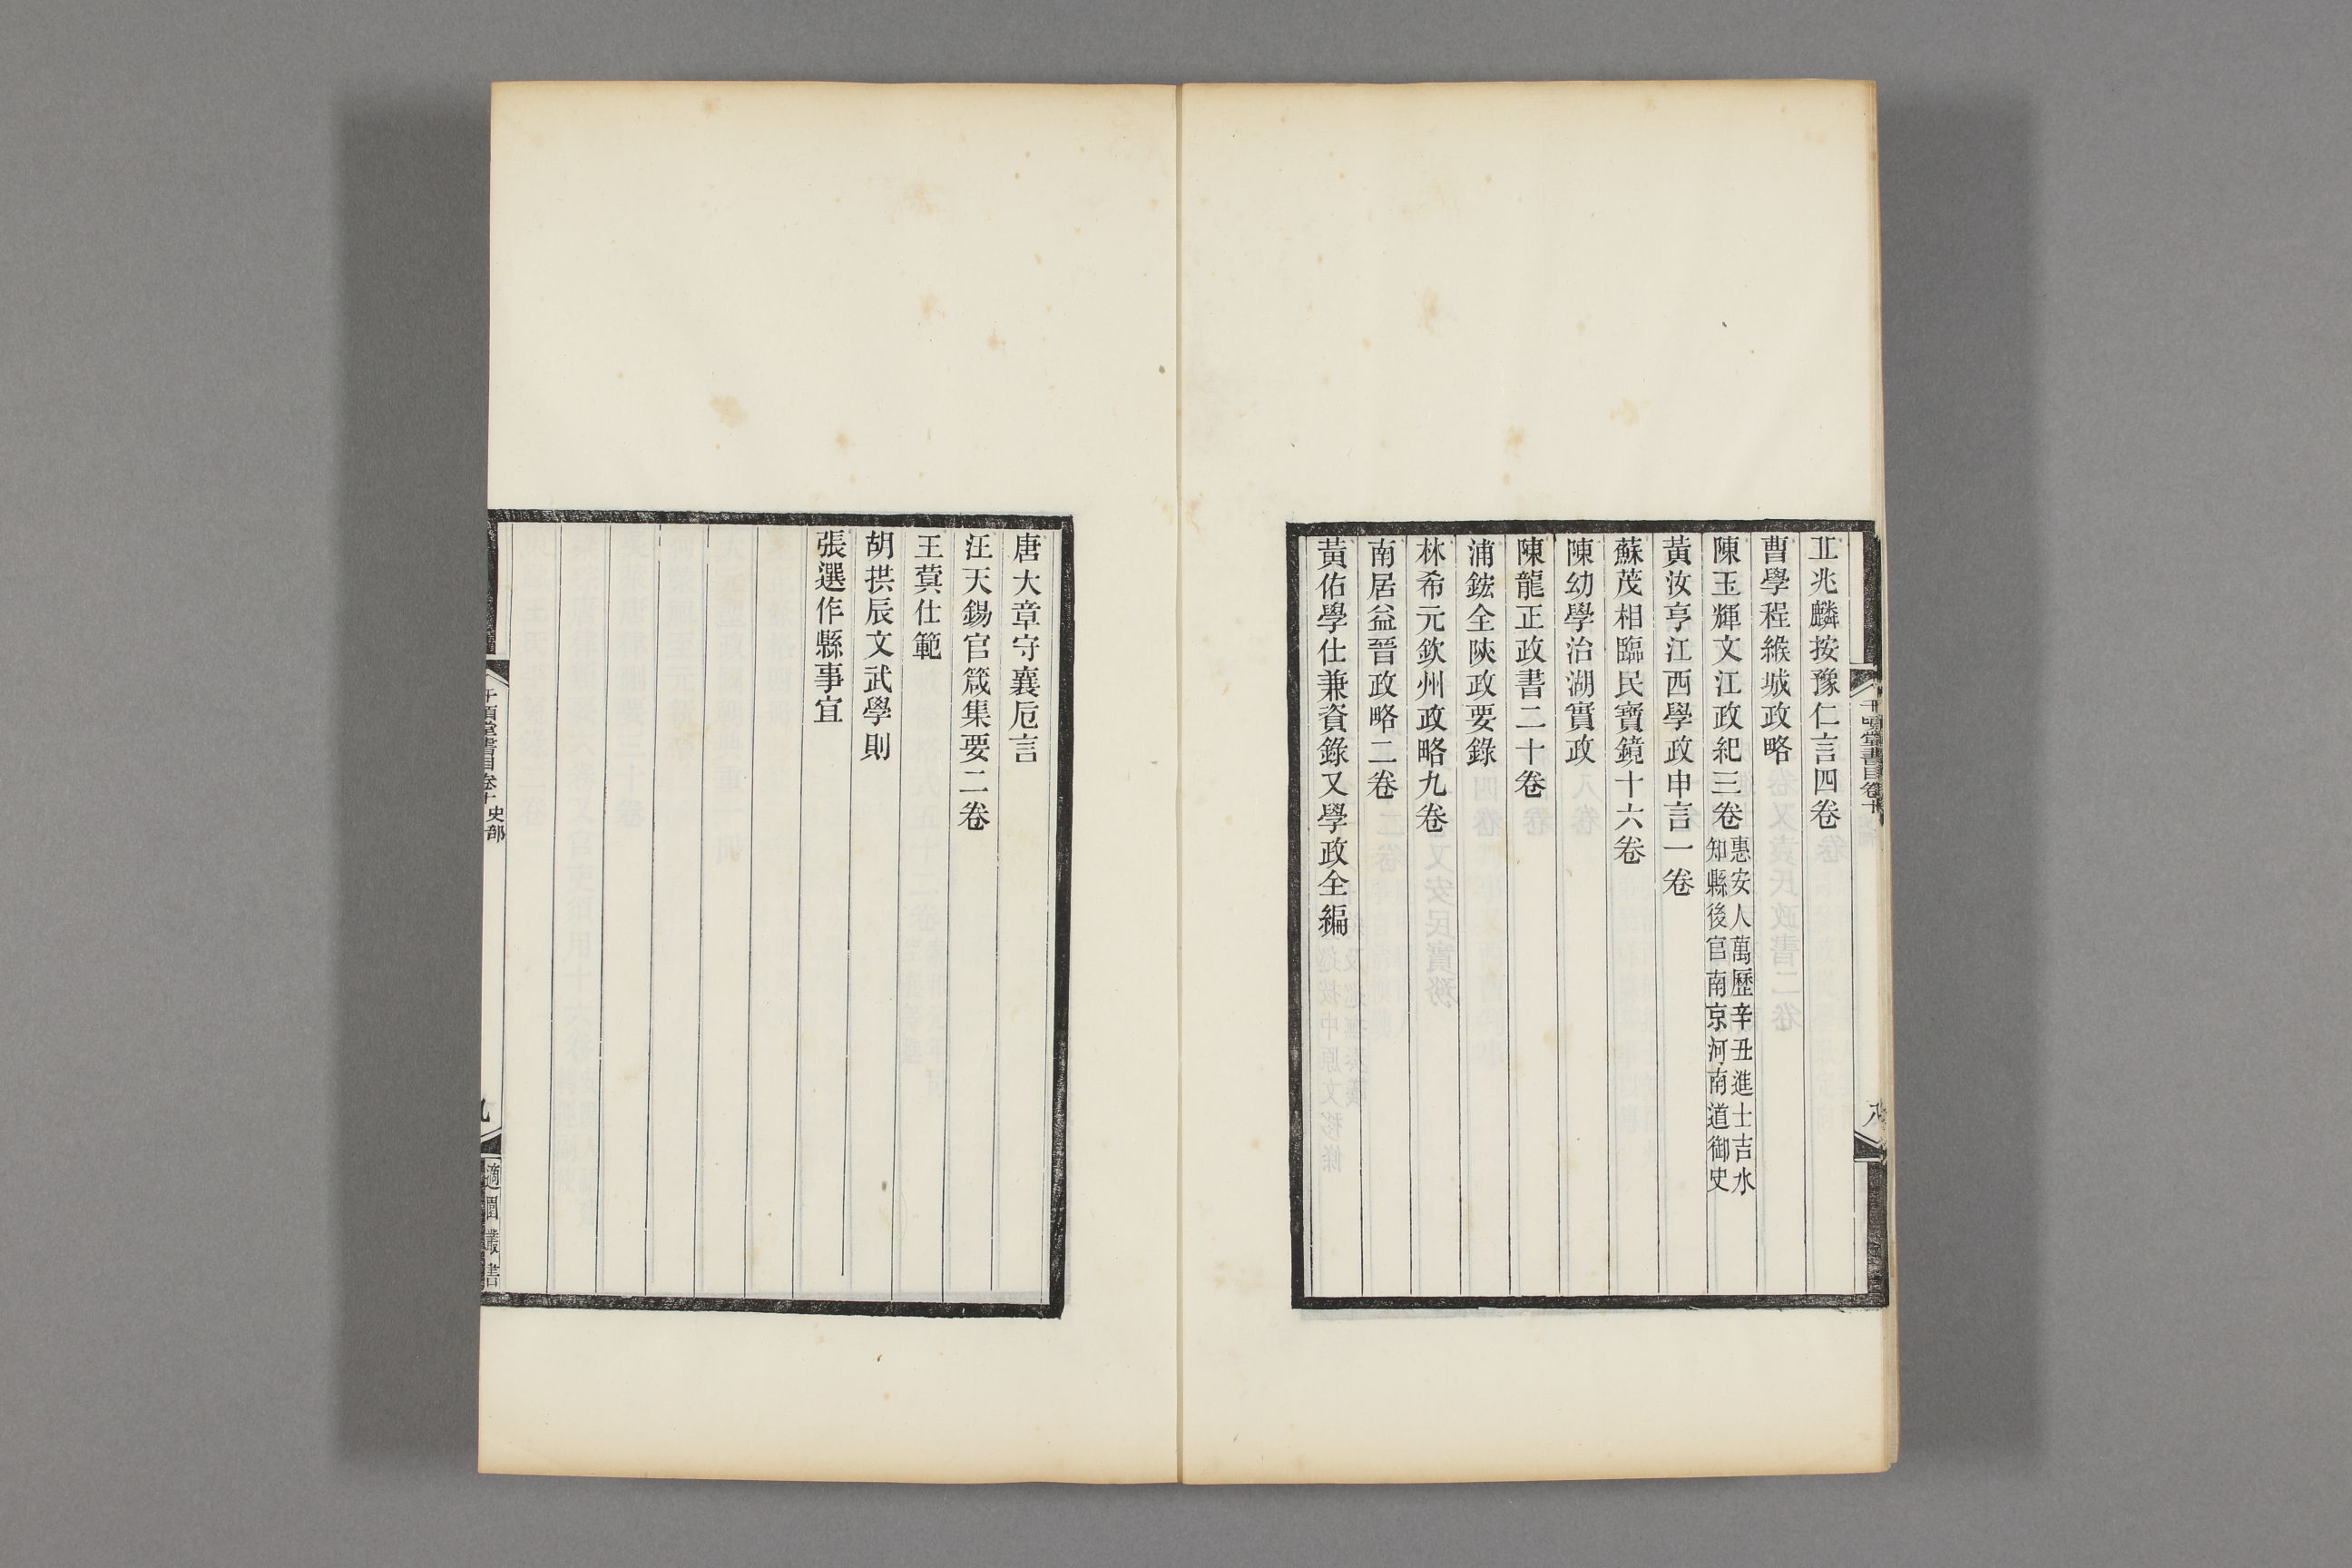 丠兆麟按豫仁言四卷
曹學程緱城政略
陳玉輝文江政紀三卷
惠安人萬歷辛丑進士吉水
知縣後官南京河南道御史
黃汝亨江西學政申言一卷
蘇茂相臨民寶鏡十六卷
陳幼學治湖實政
陳龍正政書二十卷
浦鋐全陝政要錄
林希元欽州政略九卷
南居益晉政略二卷
黃佑學仕兼資錄又學政全編
千頃堂書目卷十
八
唐大章守襄卮言
汪天錫官箴集要二卷
王蓂仕範
胡拱辰文武學則
張選作縣事宜
千頃堂書目卷十 史部
九
適園叢書